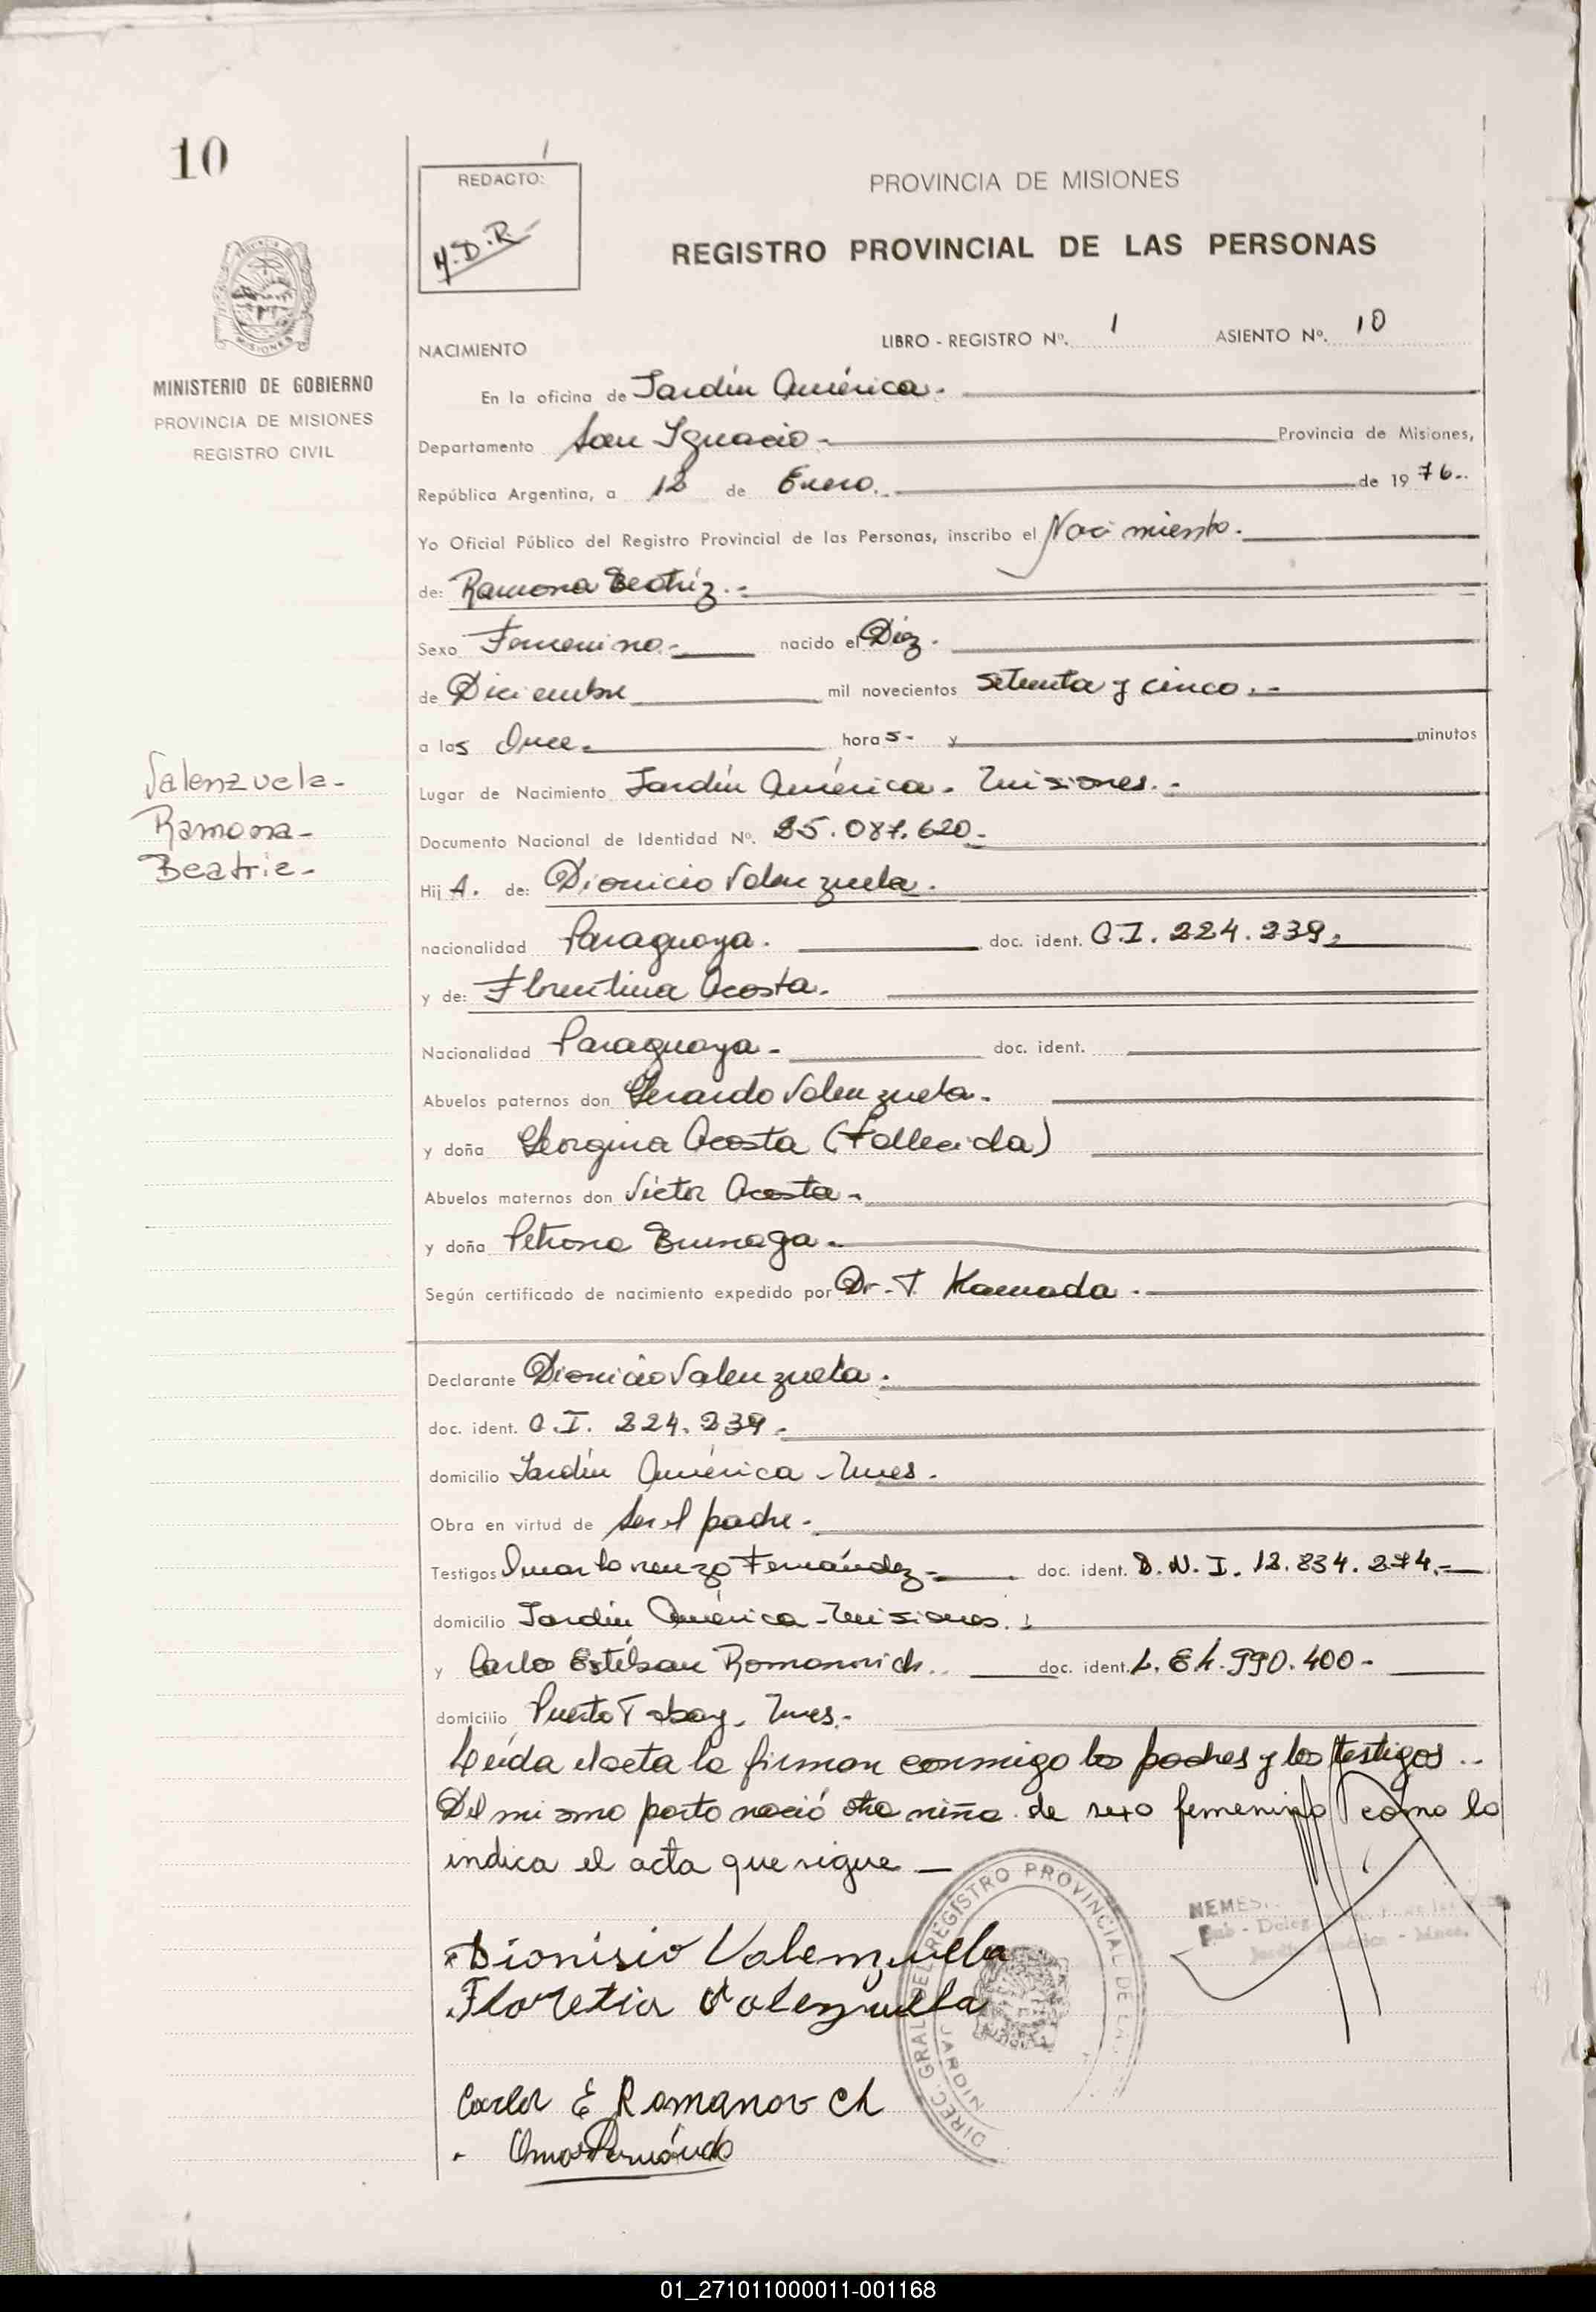 10
REDACTO:
PROVINCIA DE MISIONES
REGISTRO PROVINCIAL DE LAS PERSONAS
MISIONES
MINISTERIO DE GOBIERNO
PROVINCIA DE MISIONES
REGISTRO CIVIL
NACIMIENTO
LIBRO - REGISTRO Nº. 1 ASIENTO Nº. 10
En la oficina de Jardín América.
Departamento San Ignacio.- Provincia de Misiones,
República Argentina, a 12 de Enero. de 1976..
Yo Oficial Público del Registro Provincial de las Personas, inscribo el Nacimiento.
de: Ramona Beatríz.-
Sexo Femenino.- nacido el Diez.
de Diciembre mil novecientos setenta y cinco.-
a las Once. horas- y minutos
Lugar de Nacimiento Jardín América. Misiones.-
Documento Nacional de Identidad Nº. 25.087.620.-
Valenzuela-
Ramona-
Beatriz-
Hij A. de: Dionicio Valenzuela.
nacionalidad Paraguaya. doc. ident. C.I. 224.239.
y de: Florentina Acosta.
Nacionalidad Paraguaya. doc. ident.
Abuelos paternos don Gerardo Valenzuela.
y doña Georgina Acosta (Fallecida)
Abuelos maternos don Víctor Acosta.
y doña Petrona
Según certificado de nacimiento expedido por Dr. T. Kamada.
Declarante Dionicio Valenzuela.
doc. ident. C.I. 224.239.
domicilio Jardín América - Mnes.
Obra en virtud de ser el padre.
Testigos Omar Lorenzo Fernández.- doc. ident. D.N.I. 12.834.274.-
domicilio Jardín América - Misiones.
y Carlos Estéban Romanovich.. doc. ident. L.E 4.990.400-
domicilio Puerto Tabay, Mnes.-
Leída el acta la firman conmigo los padres y los testigos..
Del mismo parto nació otra niña de sexo femenino como lo
indica el acta que sigue
NEMES
Dionisio Valenzuella
Floretia Valenzuella
DIREC. GRAL DEL REGISTRO PROVINCIAL DE LA
JARDIN
Carlos E Romanovch
Omar Fernández
01_271011000011-001168